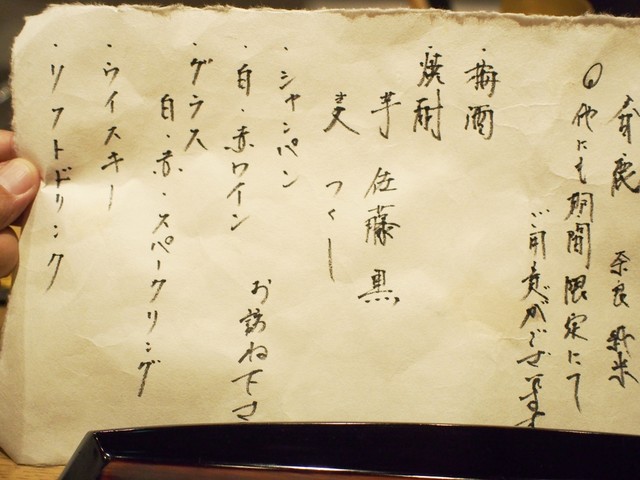 倉鹿 奈良 純米
○他にも期間限定にて
ご用意がございます
・梅酒
・焼酎
芋 佐藤 黒
麦 つくし
・シャンペン
・白・赤ワイン お訪ね下さ
・グラス
白・赤・スパークリング
・ウイスキー
・ソフトドリンク